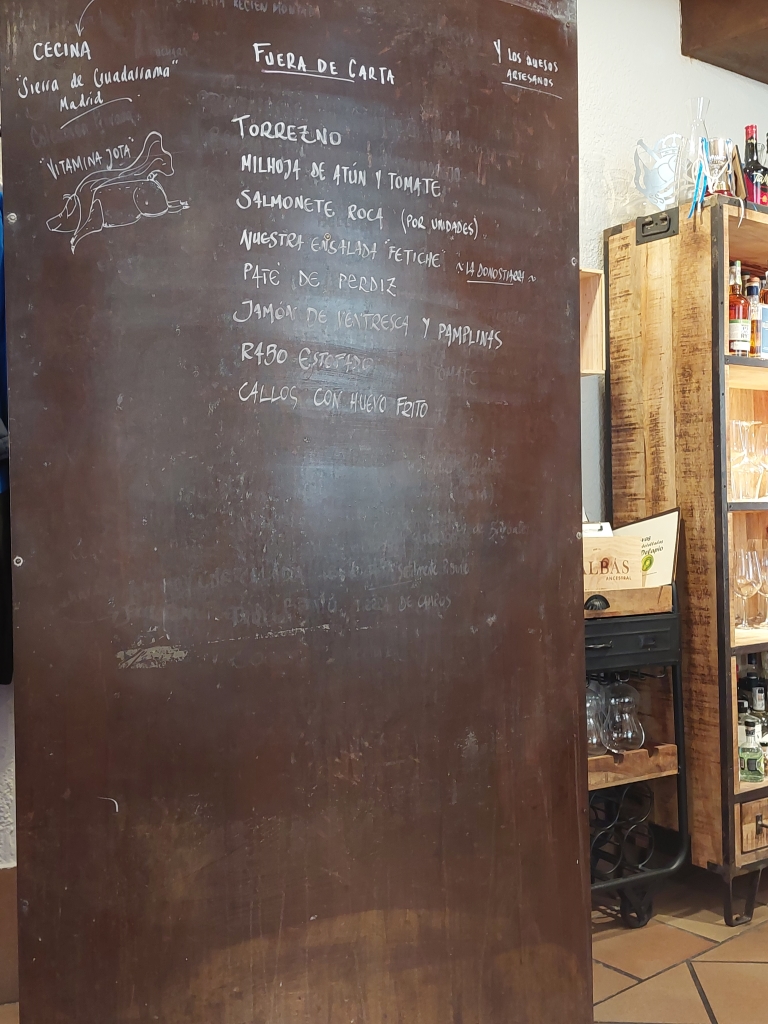 RECIEN MONTADA
CECINA
"Sierra de Guadarrama"
Madrid
"VITAMINA JOTA"
FUERA DE CARTA
Y LOS QUESOS
ARTESANOS
TORREZNO
MILHOJA DE ATÚN Y TOMATE
SALMONETE ROCA (POR UNIDADES)
NUESTRA ENSALADA "FETICHE" ~LA DONOSTIARRA~
PATÉ DE PERDIZ
JAMÓN DE VENTRESCA Y PAMPLINAS
RABO ESTOFADO
CALLOS CON HUEVO FRITO
ALBAS
ANCESTRAL